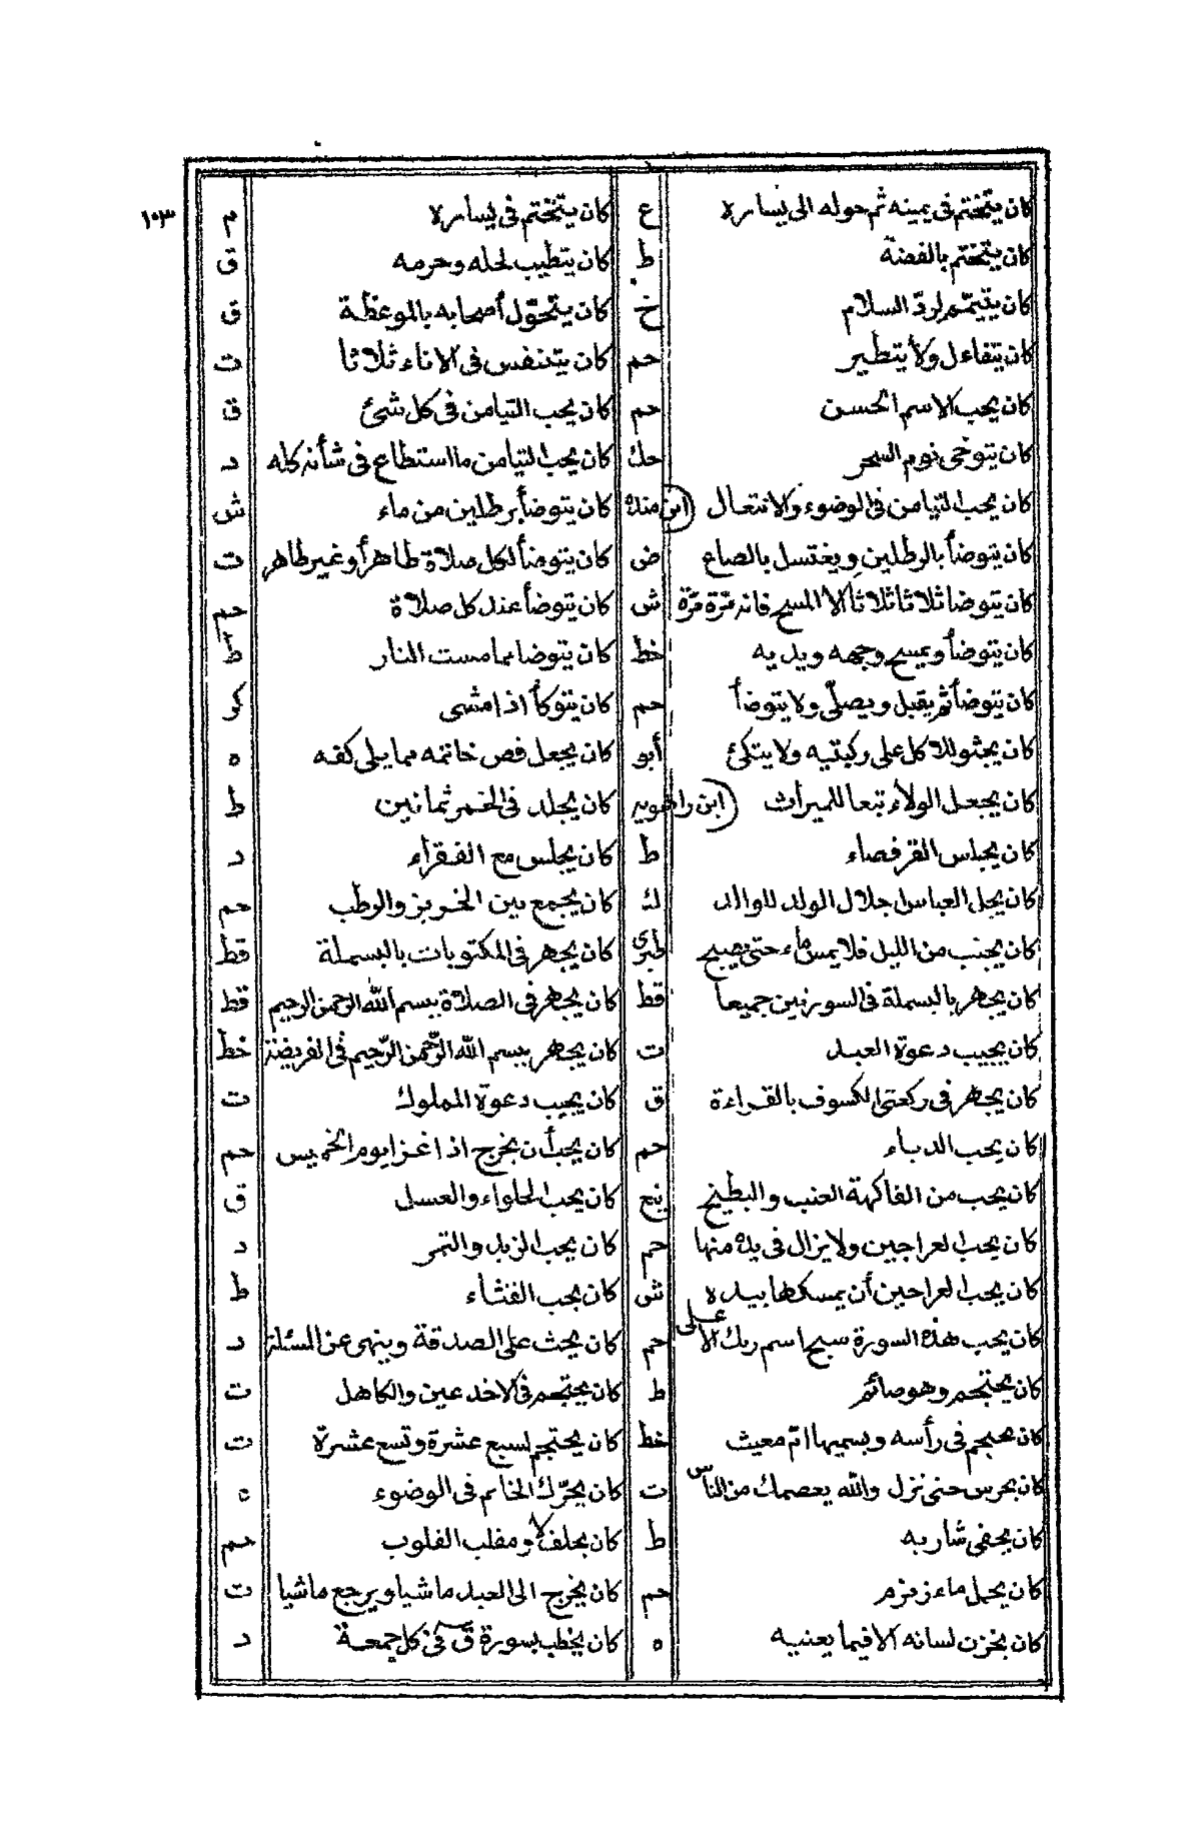 ١٠٣
كان يتختم في يمينه ثم حوله الى يساره ع كان يتختم في يساره م
كان يتختم بالفضة ط كان يتطيب لحله وحرمه ق
كان يتيمّم لردّ السلام خ كان يتخوّل أصحابه بالموعظة ق
كان يتفاءل ولا يتطير حم كان يتنفس في الاناء ثلاثا ت
كان يحب الاسم الحسن حم كان يحب التيامن في كل شئ ق
كان يتوخى نوم السحر حك كان يحب التيامن ما استطاع في شأنه كله د
كان يحب التيامن في الوضوء والانتعال (ابن منده كان يتوضأ برطلين من ماء ش
كان يتوضأ بالرطلين ويغتسل بالصاع ض كان يتوضأ لكل صلاة طاهرا أو غير طاهر ت
كان يتوضأ ثلاثا ثلاثا الا المسح فانه مرّة مرّة ش كان يتوضأ عند كل صلاة حم
كان يتوضأ ويمسح وجهه ويديه خط كان يتوضا مما مست النار ط
كان يتوضأ ثم يقبل ويصلّي ولا يتوضأ حم كان يتوكأ اذا مشى
كان يجثو للاكل على ركبتيه ولا يتكئ أبو كان يجعل فص خاتمه مما يلى كفه ه
كان يجعل الولاء تبعا للميراث (ابن راهويه كان يجلد في الخمر ثمانين ط
كان يجلس القرفصاء ط كان يجلس مع الفقراء د
كان يجل العباس اجلال الولد للوالد ك كان يجمع بين الخربز والرطب حم
كان يجنب من الليل فلا يمس ماء حتى يصبح طبرى كان يجهر في المكتوبات بالبسملة قط
كان يجهر بالبسملة في السورتين جميعا قط كان يجهر في الصلاة ببسم الله الرحمن الرحيم قط
كان يجيب دعوة العبد ت كان يجهر ببسم الله الرّحمن الرّحيم في الفريضة خط
كان يجهر في ركعتى الكسوف بالقراءة ق كان يجيب دعوة المملوك ت
كان يحب الدباء حم كان يحب أن يخرج اذا غزا يوم الخميس حم
كان يحب من الفاكهة العنب والبطيخ نع كان يحب الحلواء والعسل ق
كان يحب العراجين ولا يزال في يده منها حم كان يحب الزبد والتمر د
كان يحب العراجين أن يمسكها بيده ش كان يحب القثاء ط
كان يحب هذه السورة سبح اسم ربك الاعلى حم كان يحث على الصدقة وينهى عن المسئلة د
كان يحتجم وهو صائم ط كان يحتجم في الاخدعين والكاهل ت
كان يحتجم في رأسه ويسميها ام مغيث خط كان يحتجم لسبع عشرة وتسع عشرة ت
كان يحرس حتى نزل والله يعصمك من الناس ت كان يحرّك الخاتم في الوضوء ه
كان يحفى شاربه ط كان يحلف لا ومقلب القلوب حم
كان يحمل ماء زمزم حم كان يخرج الى العيد ماشيا ويرجع ماشيا ت
كان يخزن لسانه الا فيما يعنيه ه كان يخطب بسورة ق في كل جمعة د